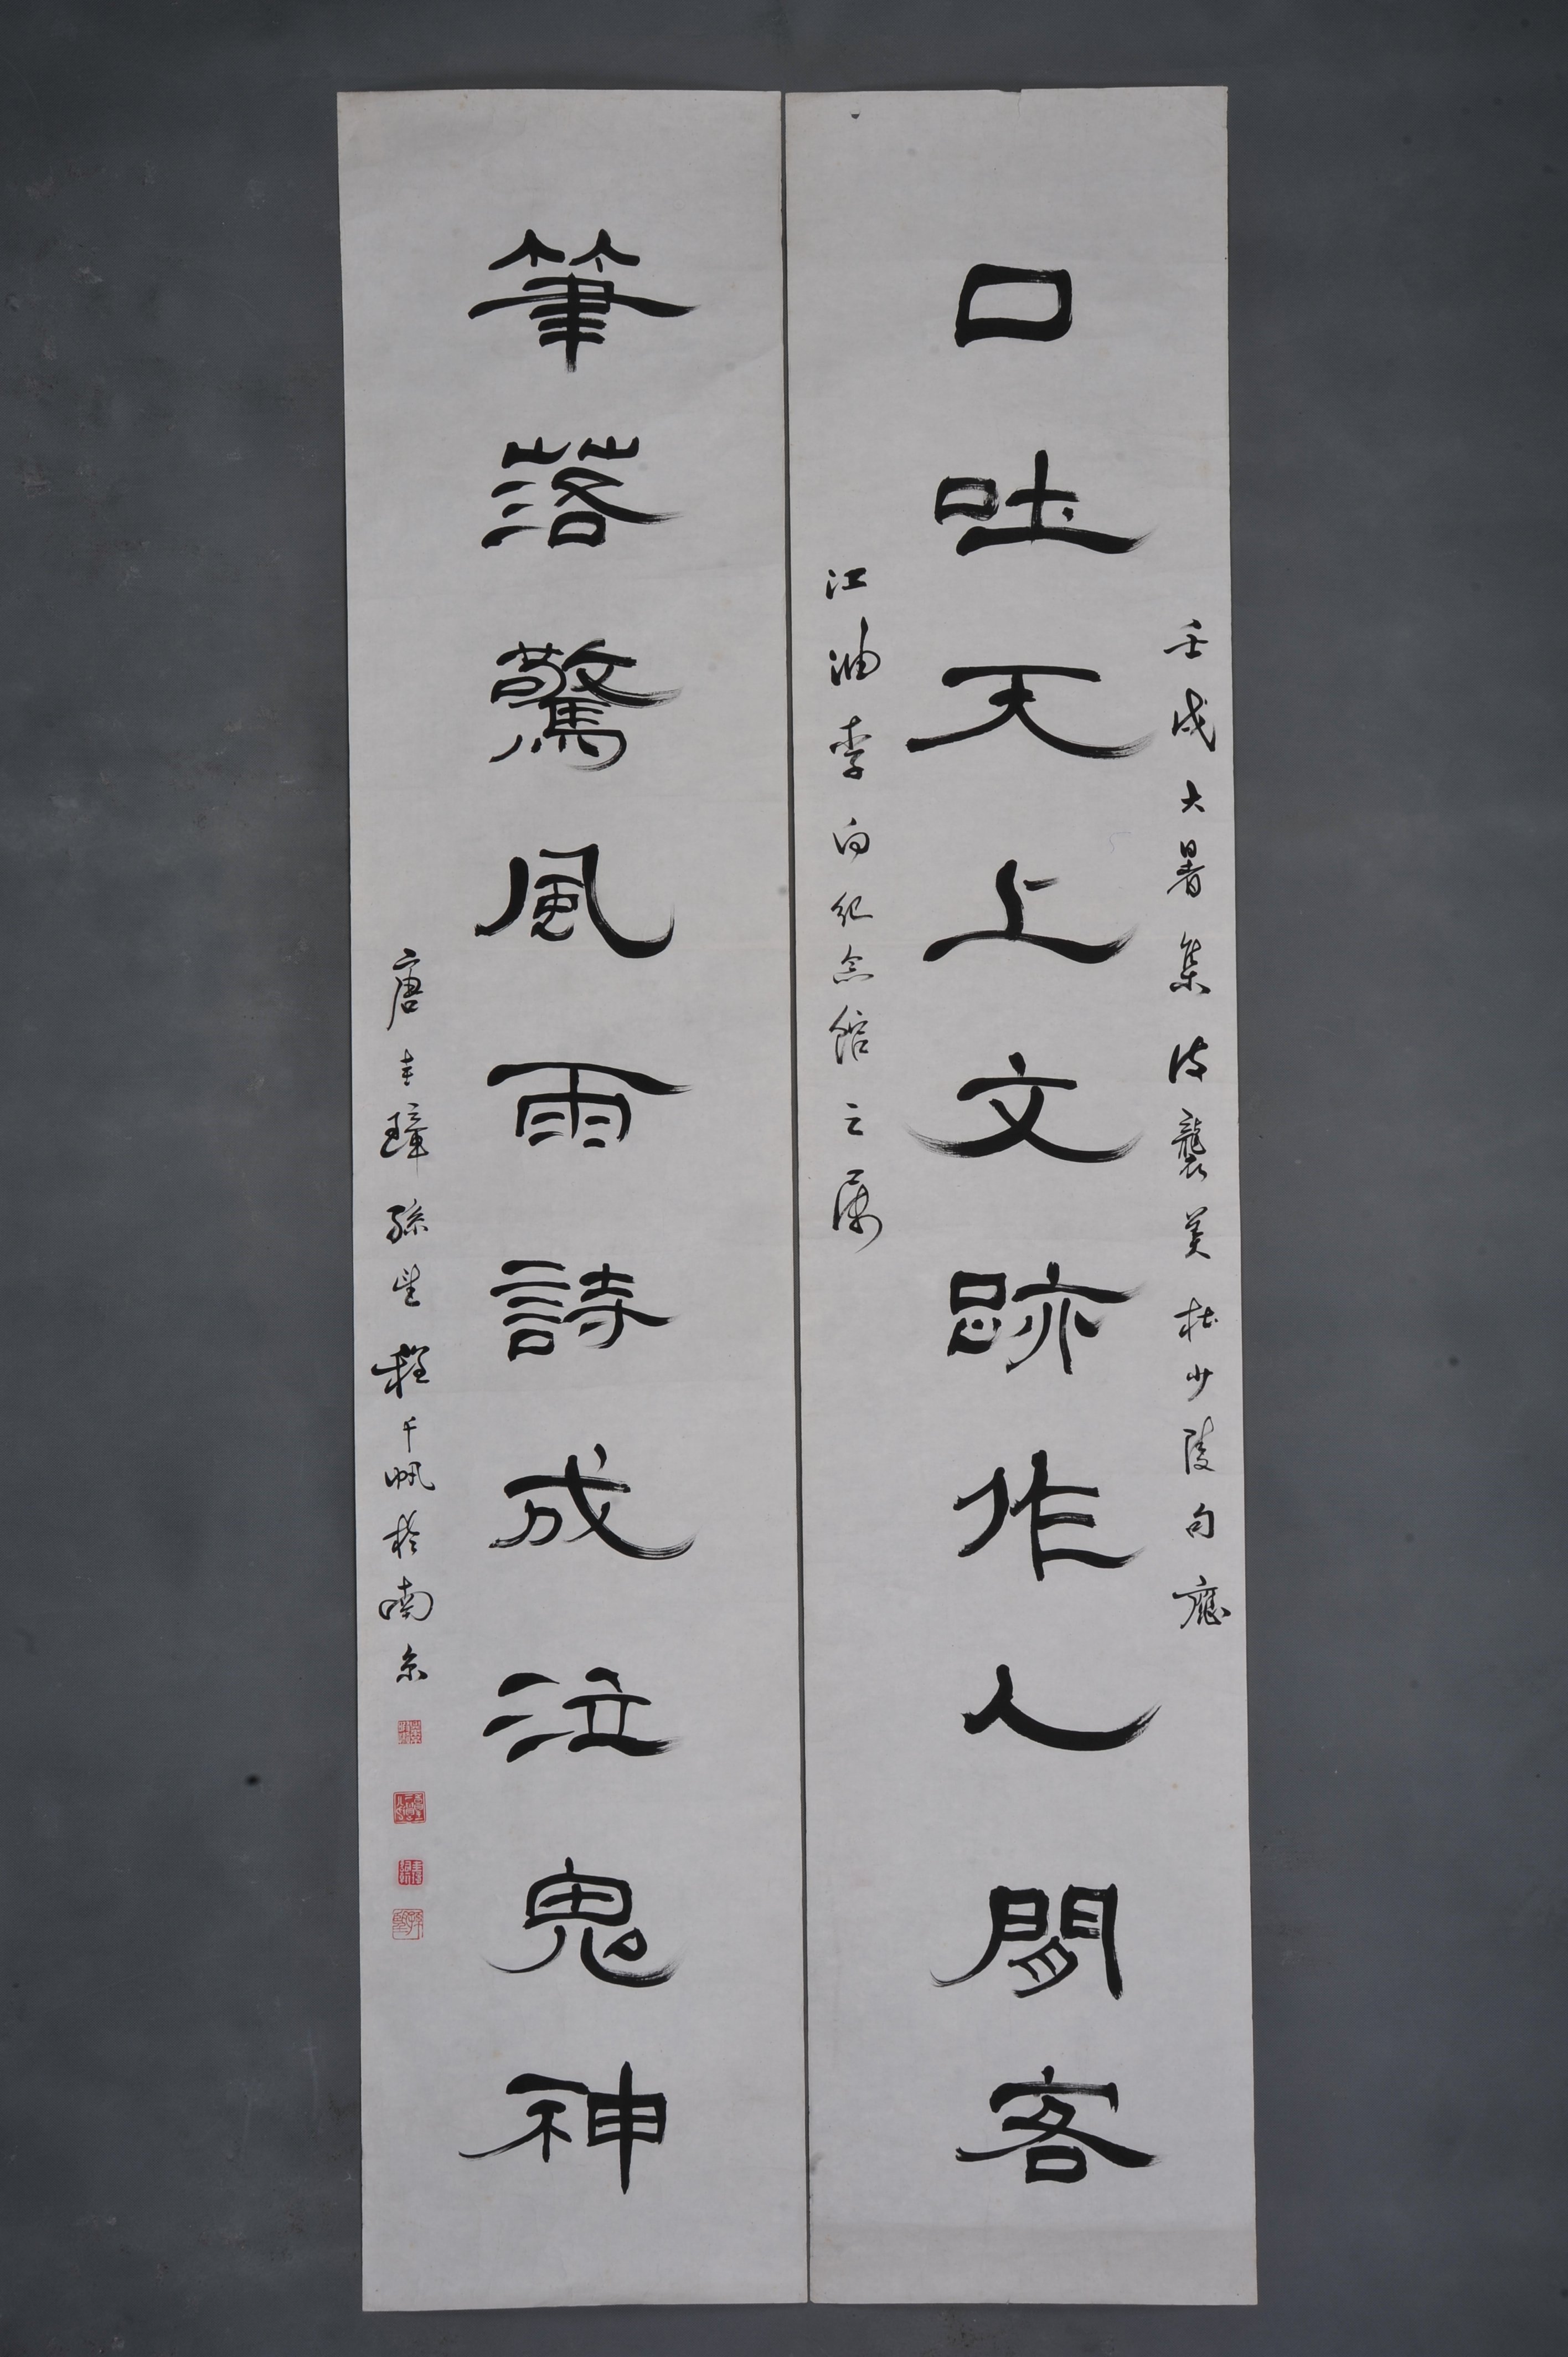 壬戌大暑集皮襲美杜少陵句應
口吐天上文跡作人間客
江油李白紀念館之屬
筆落驚風雨詩成泣鬼神
唐圭璋孫望程千帆於南京